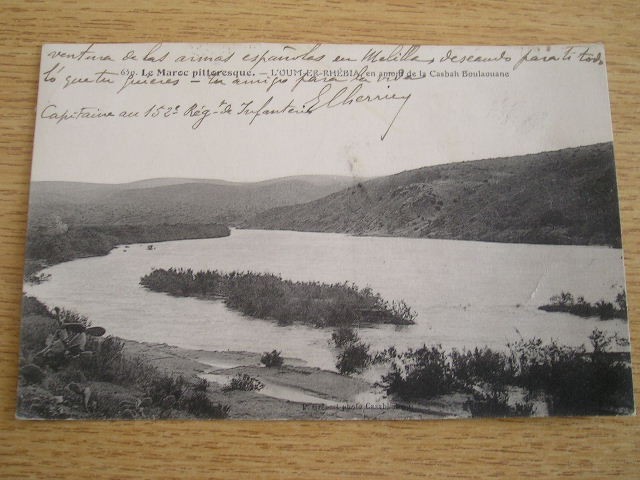 ventura de las armas españolas en Melilla, deseando para ti todo
639. Le Maroc pittoresque. — L'OUM-ER-RHEBIA, en amont de la Casbah Boulaouane
lo que tu quieres — un amigo para la vida
Capitaine au 152e Régt de Infanterie
P. Grébert photo Casablanca